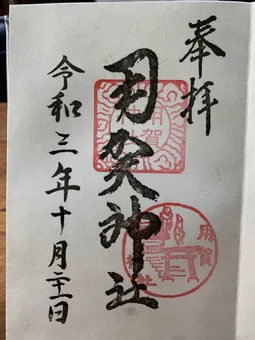 奉拝
用賀神社
令和三年十月二十一日
用賀
神社